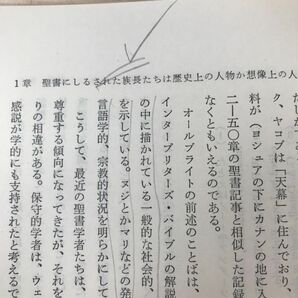 1章 聖書にしるされた族長たちは歴史上の人物か想像上の人
ク、ヤコブは「天幕」に住んでおり、
料が(ヨシュアの下にカナンの地に入
二―五〇章の聖書記事と相似した記録
くともいえるのである。
オールブライトの前述のことばは、
インタープリターズ・バイブルの解説
の中に描かれている一般的な社会的、
を示している。ヌジとかマリなどの発
言語学的、宗教的状況を明らかにして
こうして、最近の聖書学者たちは、
尊重する傾向になってきたが、それを
りの相違がある。保守的学者は、ウェ
感説が学的にも支持されたと考えるで